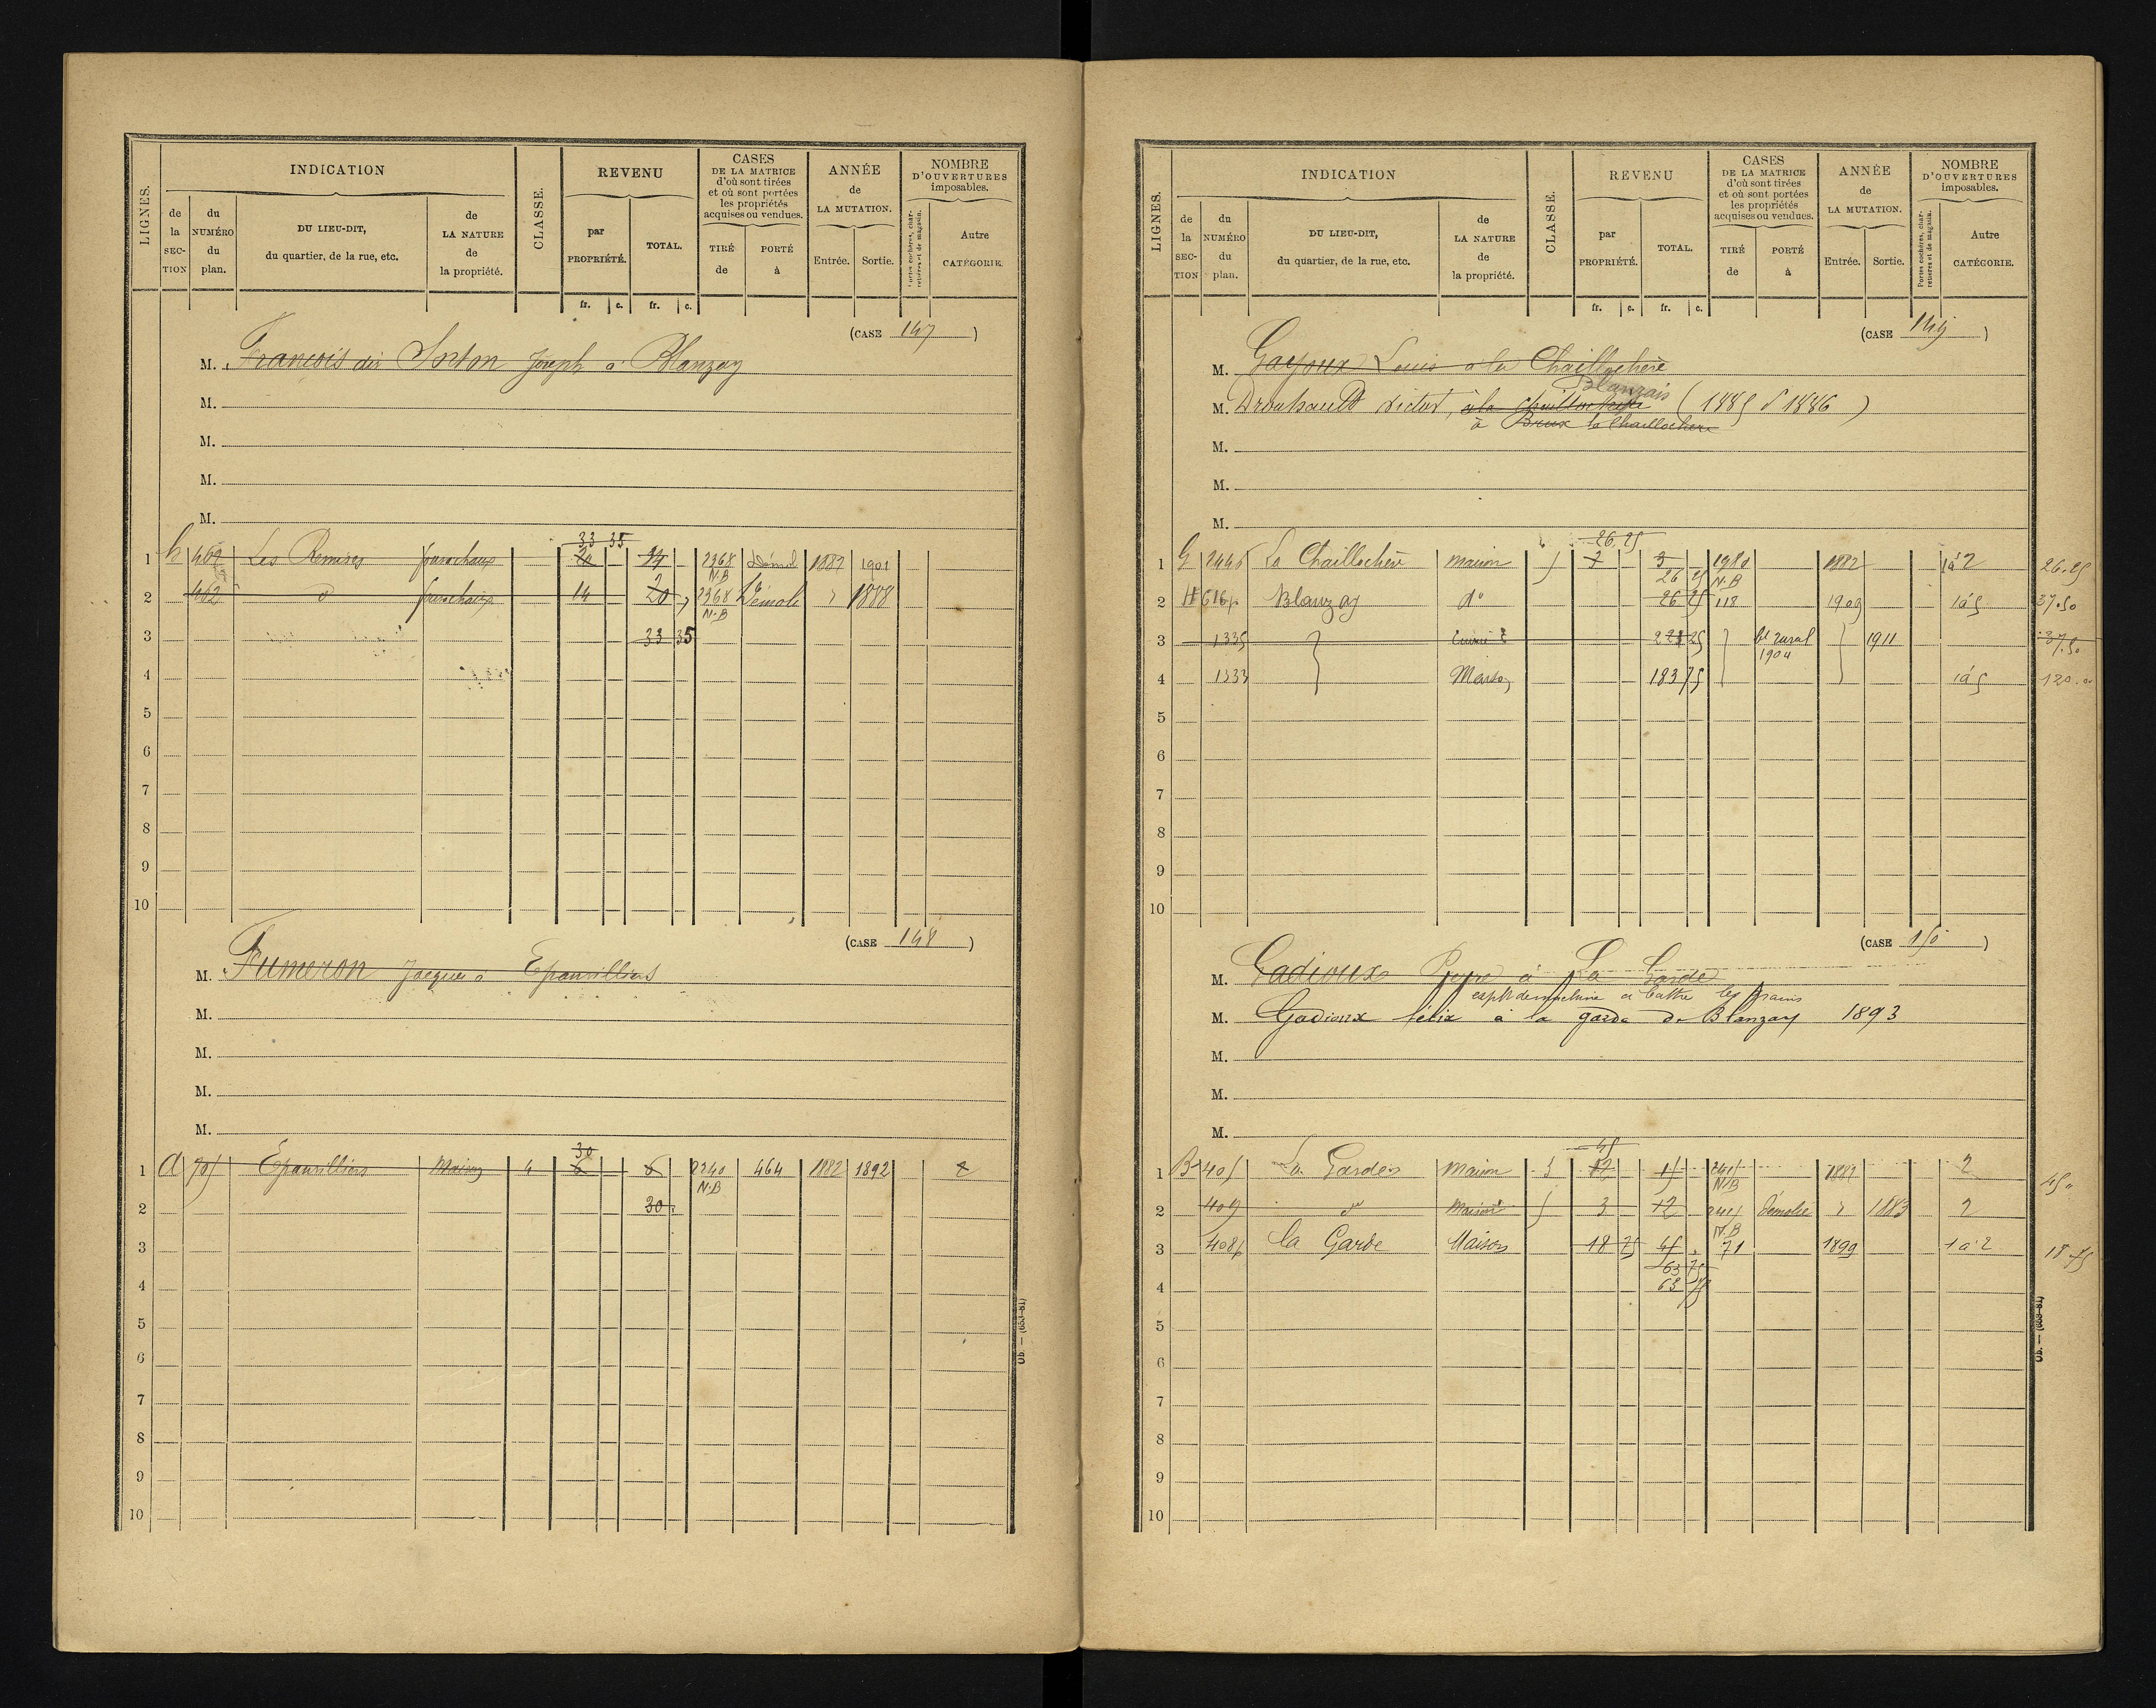 LIGNES. INDICATION CLASSE. REVENU CASES DE LA MATRICE d'où sont tirées et où sont portées les propriétés acquises ou vendues. ANNÉE de LA MUTATION. NOMBRE D'OUVERTURES imposables.
de la SECTION du NUMÉRO du plan. DU LIEU-DIT, du quartier, de la rue, etc. de LA NATURE de la propriété. par PROPRIÉTÉ. TOTAL. TIRÉ de PORTÉ à Entrée. Sortie. Portes cochères, charretières et de magasin. Autre CATÉGORIE.
fr. c. fr. c.
(CASE 147)
M. François dit Joseph à Blanzay
M.
M.
M.
M.
33 35
1 h 462 Les Remises fourachaux 14 2368 Démol 1882 1901
N.B
2 462 d fourachaux 14 20 2368 Démoli " 1888
N.B
3 33 35
4
5
6
7
8
9
10
(CASE 148)
M. Fumeron Jacques à Epanvilliers
M.
M.
M.
M.
30
1 A 705 Épanvilliers Maison 4 6 6 2240 464 1882 1892 2
N.B
2 30
3
4
5
6
7
8
9
10
Ob. — (653-81)
LIGNES. INDICATION CLASSE. REVENU CASES DE LA MATRICE d'où sont tirées et où sont portées les propriétés acquises ou vendues. ANNÉE de LA MUTATION. NOMBRE D'OUVERTURES imposables.
de la SECTION du NUMÉRO du plan. DU LIEU-DIT, du quartier, de la rue, etc. de LA NATURE de la propriété. par PROPRIÉTÉ. TOTAL. TIRÉ de PORTÉ à Entrée. Sortie. Portes cochères, charretières et de magasin. Autre CATÉGORIE.
fr. c. fr. c.
(CASE 149)
M. Gayoux Louis à la Chaillochère
Blanzais
M. Drouhault Victor, à la Chaillochère (1885 d 1886)
à Brux la Chaillochère
M.
M.
M.
26.25
1 G La Chaillochère maison 5 3 1980 1882 1à2 26.25
26 25 N.B
2 H 616p Blanzay do 26 25 118 1909 1à5 37.50
3 1335 25 bt rural 1911 37.50
1904
4 1333 Maison 183 75 1à5 120.00
5
6
7
8
9
10
(CASE 150)
M. Gadioux à La Garde
de machine à battre les grains
M. Gadioux félix à la garde de Blanzay 1893
M.
M.
M.
45
1 B 405 La Garde maison 5 12 15 2415 1882 2 45"
N.B
2 409 do maison 5 3 12 2415 Démolie " 1883 2
N.B
3 408p la Garde Maison 18 75 45 71 1899 1à2 18.75
63 75
4 63 75
5
6
7
8
9
10
Ob. — (653-81)